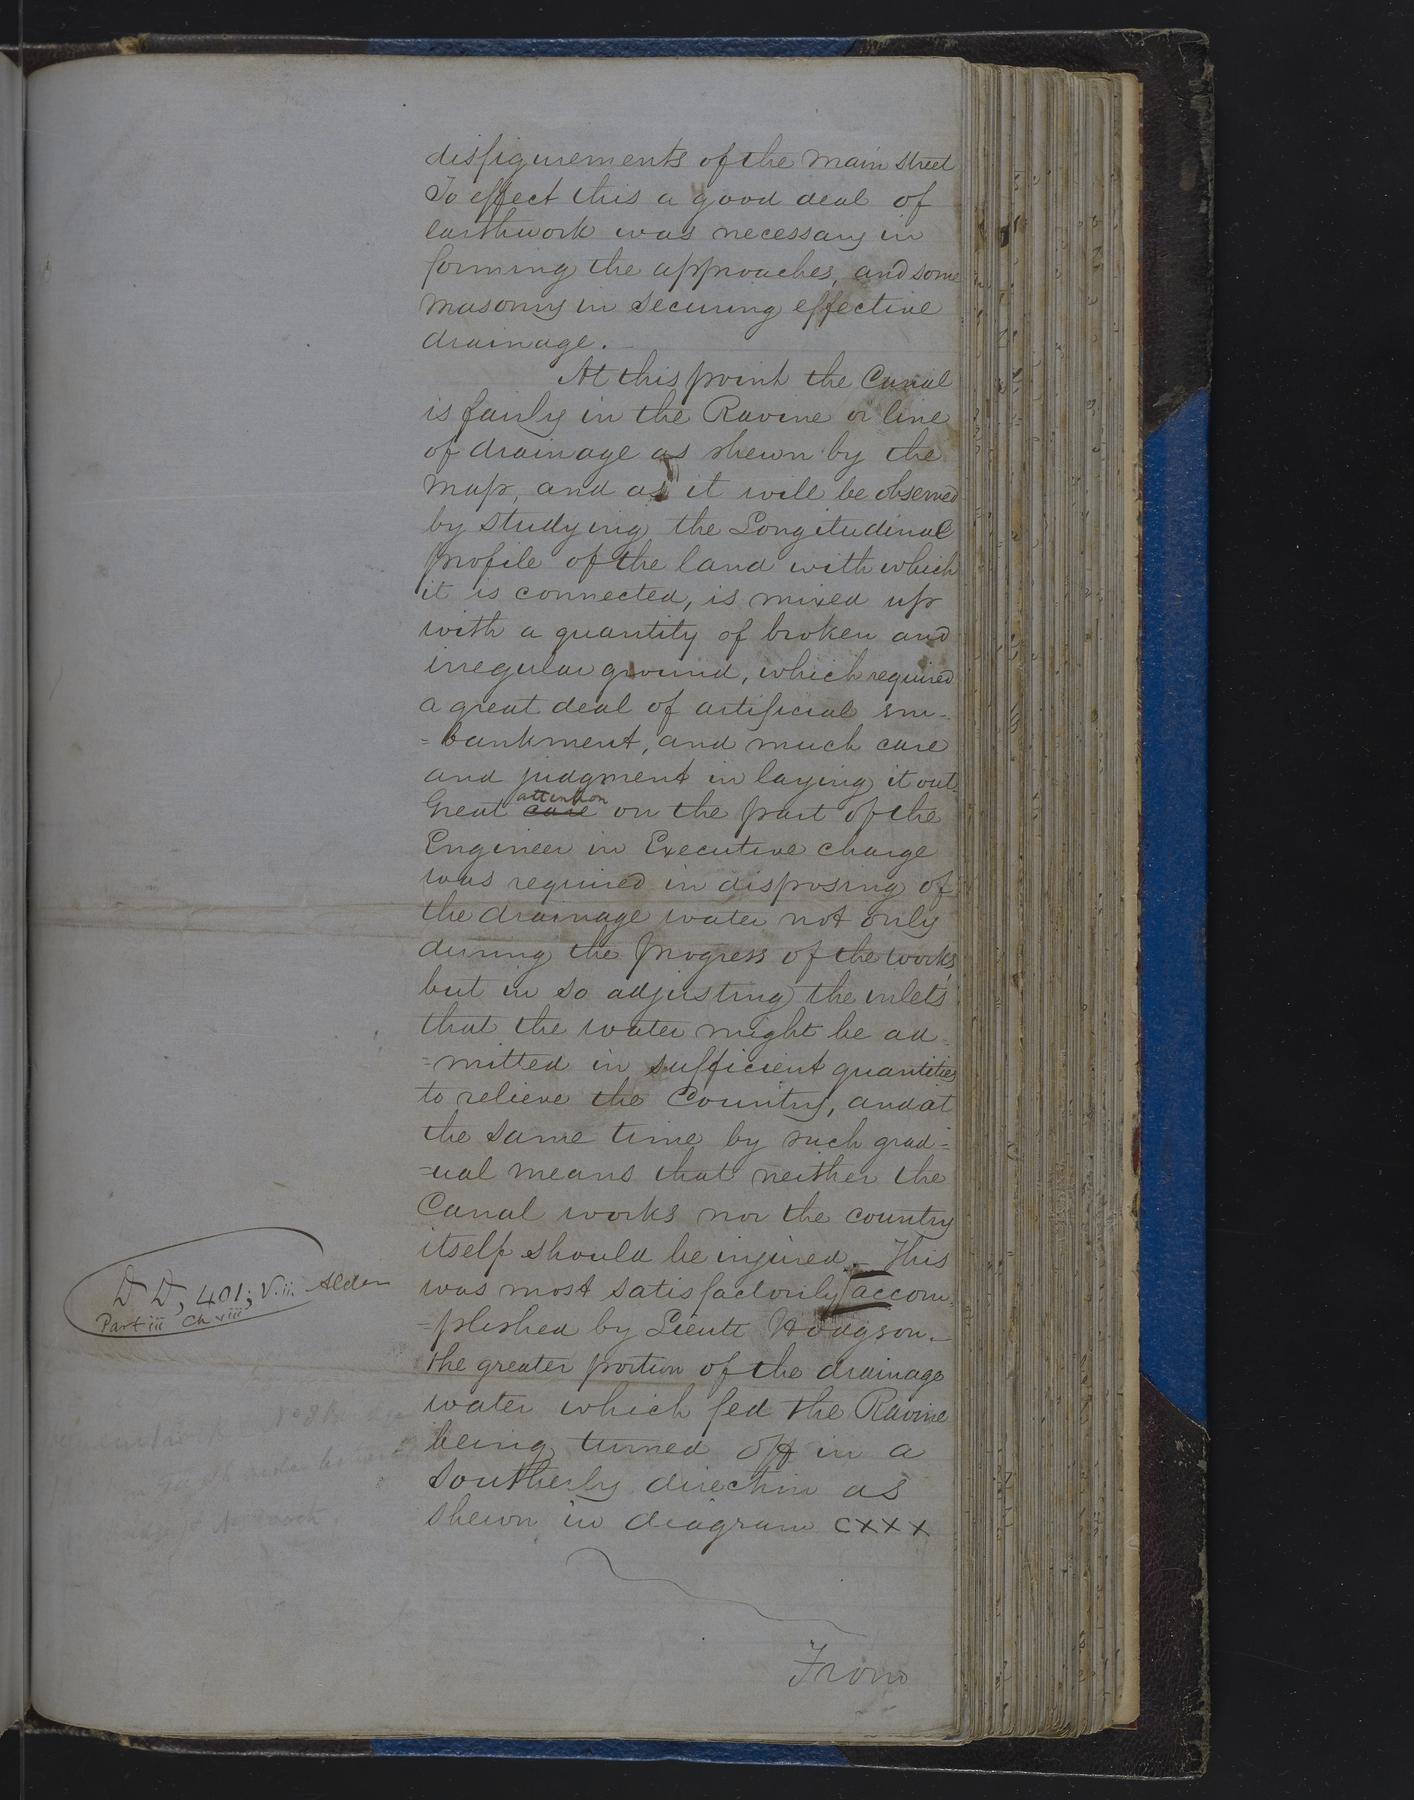 disfigurements of the main street
To effect this a good deal of
earthwork was necessary in
forming the approaches, and some
masonry in securing effective
drainage.
At this point the Canal
is fairly in the Ravine or line
of drainage as shewn by the
map, and as it will be observed
by studying the Longitudinal
profile of the land with which
it is connected, is mixed up
with a quantity of broken and
irregular ground, which required
a great deal of artificial em-
=bankment, and much care
and judgment in laying it out.
attention
Great care on the part of the
Engineer in Executive charge
was required in disposing of
the drainage water not only
during the progress of the works,
but in so adjusting the inlets
that the water might be ad-
=mitted in sufficient quantities
to relieve the Country, and at
the same time by such grad=
=ual means that neither the
Canal works nor the country
itself should be injured. This
was most satisfactorily accom-
=plished by Lieutt Hodgson.-
the greater portion of the drainage
water which fed the Ravine
being turned off in a
Southerly direction as
shewn in diagram cxxx
D D, 401, V.ii. Alden
Part iii Ch viii
From